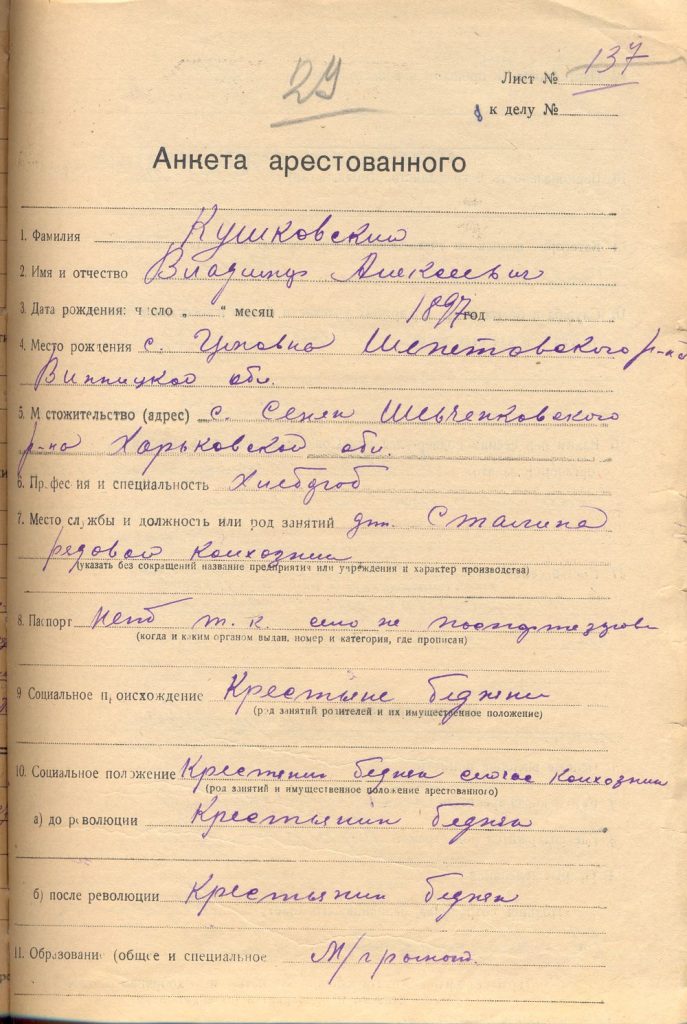 29
Лист № 137
к делу №
Анкета арестованного
1. Фамилия Кушковский
2. Имя и отчество Владимир Алексеевич
3. Дата рождения: число „ “ месяц 1897 год
4. Место рождения с. Шепетовского р-на
Винницкой обл.
5. М стожительство (адрес) с. Сенек Шевченковского
р-на Харьковской обл.
6. Пр фес ия и специальность Хлебороб
7. Место службы и должность или род занятий Сталина
редовой колхозник
(указать без сокращений название предприятия или учреждения и характер производства)
8. Паспорт нет т. к. село не
(когда и каким органом выдан, номер и категория, где прописан)
9 Социальное п оисхождение Крестьяне бедняки
(род занятий родителей и их имущественное положение)
10. Социальное положение бедняк сейчас колхозник
(род занятий и имущественное положение арестованного)
а) до революции Крестьянин бедняк
б) после революции Крестьянин бедняк
11. Образование (общее и специальное М/грамот.